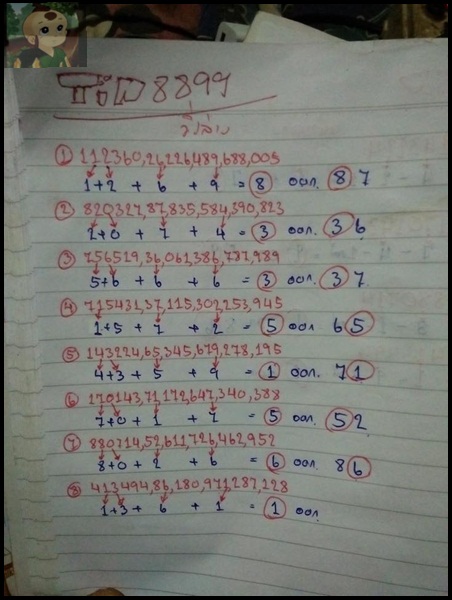 8899
วิ่งล่าง
① 112360,26,226,489,688,005
1+2 + 6 + 9 = 8 ออก. 87
② 820327,87,835,584,390,823
2+0 + 7 + 4 = 3 ออก. 36
③ 756529,36,061,386,787,989
5+6 + 6 + 6 = 3 ออก. 37
④ 715431,37,115,302,253,945
1+5 + 7 + 2 = 5 ออก 65
⑤ 143224,65,345,679,278,195
4+3 + 5 + 9 = 1 ออก. 71
⑥ 270143,71,172,647,340,388
7+0 + 1 + 7 = 5 ออก. 52
⑦ 880714,52,611,726,462,952
8+0 + 2 + 6 = 6 ออก. 86
⑧ 413494,86,180,971,287,228
1+3 + 6 + 1 = 1 ออก.